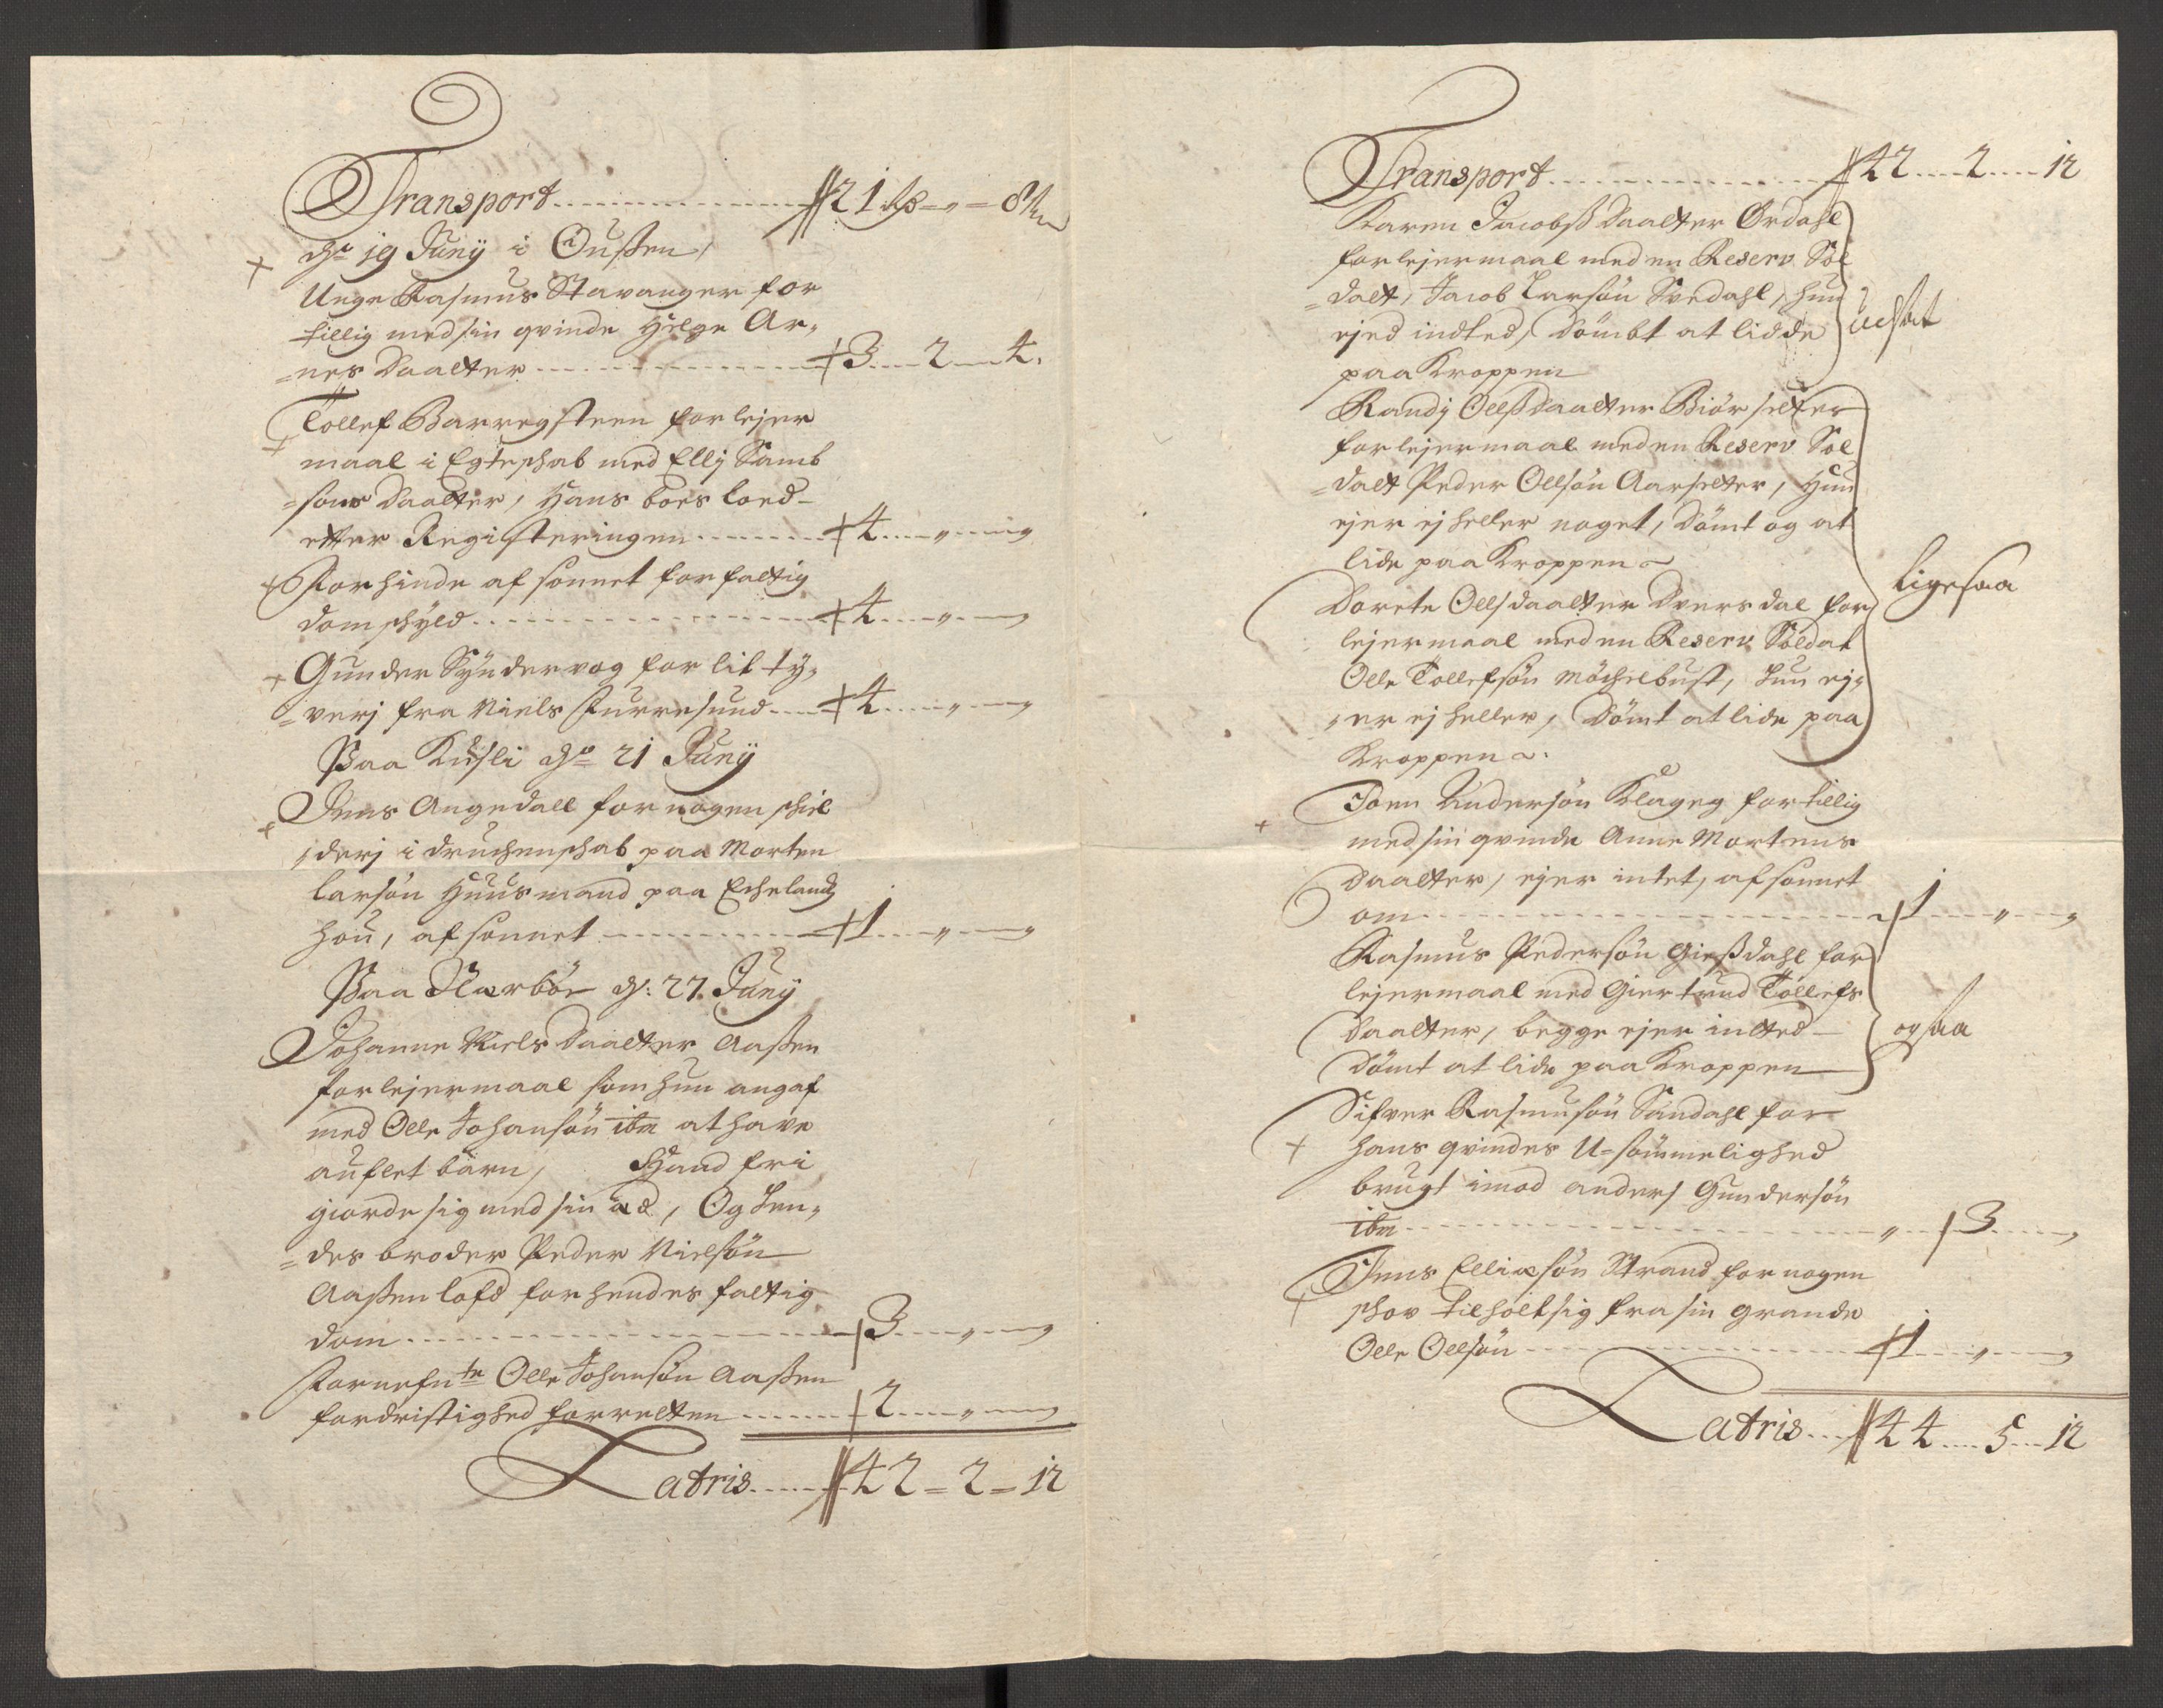 Transport 21 Rd „ 8 s
d. 19 Junij i Oussen,
Unge Rasmus Stavanger for
tillig med sin qvinde Helge Ar„
„nes Daatter 3 2 4
Tollef Barregsteen for lejer
maal i Egteschab med Ellj Samb
„sons Daatter, Hans boes lood
etter Registeringen 4 „ „
For hinde afsonnet forfaltig
domschyld 4 „ „
Gunder Syndervog for lit ty„
„verj fra Niels Furresund 4 „ „
Paa Kusli d. 21 Junij
Jens Angedall for nogen schiel
„derj i druchenschab paa Morten
larsøn Huusmand paa Echelands
hou, afsonnet 1 „ „
Paa Nærbøe d: 27. Junij
Johanne Niels Daatter Aassen
for lejermaal som hun angaf
med Olle Johansøn ibm at have
auflet barn, Hand fri
giorde sig med sin æd, Og hen„
„des broder Peder Nielsøn
Aassen lofd for hendes faltig
dom 3 „ „
Fornefnte Olle Johansøn Aassen
for dristighed for retten 2 „ „
Latris 42 = 2 = 12
Transport 42 2 12
Karen Jacobss Daatter Ørdahl
for lejermaal med en Reserv Sol
„dat, Jacob Larsøn Svedahl, hun
ejed indted, Dømbt at lidde
paa Kroppen
Randj Ollss Daatter Biørsetter
for lejermaal med en Reserv Sol
„dat Peder Ollsøn Aarsetter, Hun
ejer ej heller noget, Dømt og at
lide paa Kroppen
ligesaa
Dorete Ollsdaatter Dversdal for
lejermaal med en Reserv Soldat
Olle Tollefsøn Møchelbust, hun ej„
„er ej heller, Dømt at lide paa
Kroppen
Joen Andersøn Klageg for tillig
med sin qvinde Anne Mortens
Daatter, ejer intet, afsonnet
om 1 „ „
Rasmus Pedersøn Giessdahl for
lejermaal med Giertrud Tollefs
Daatter, begge ejer inted
Dømt at lide paa Kroppen
ogsaa
Sifver Rasmusøn Sandahl for
hans qvindes U-sømmelighed
brugt imod anders Gundersøn
ibm „ 3 „
Jens Ellingsøn Strand for nogen
schov tilholt sig fra sin grande
Olle Ollsøn 1 „ „
Latris 44 5 12